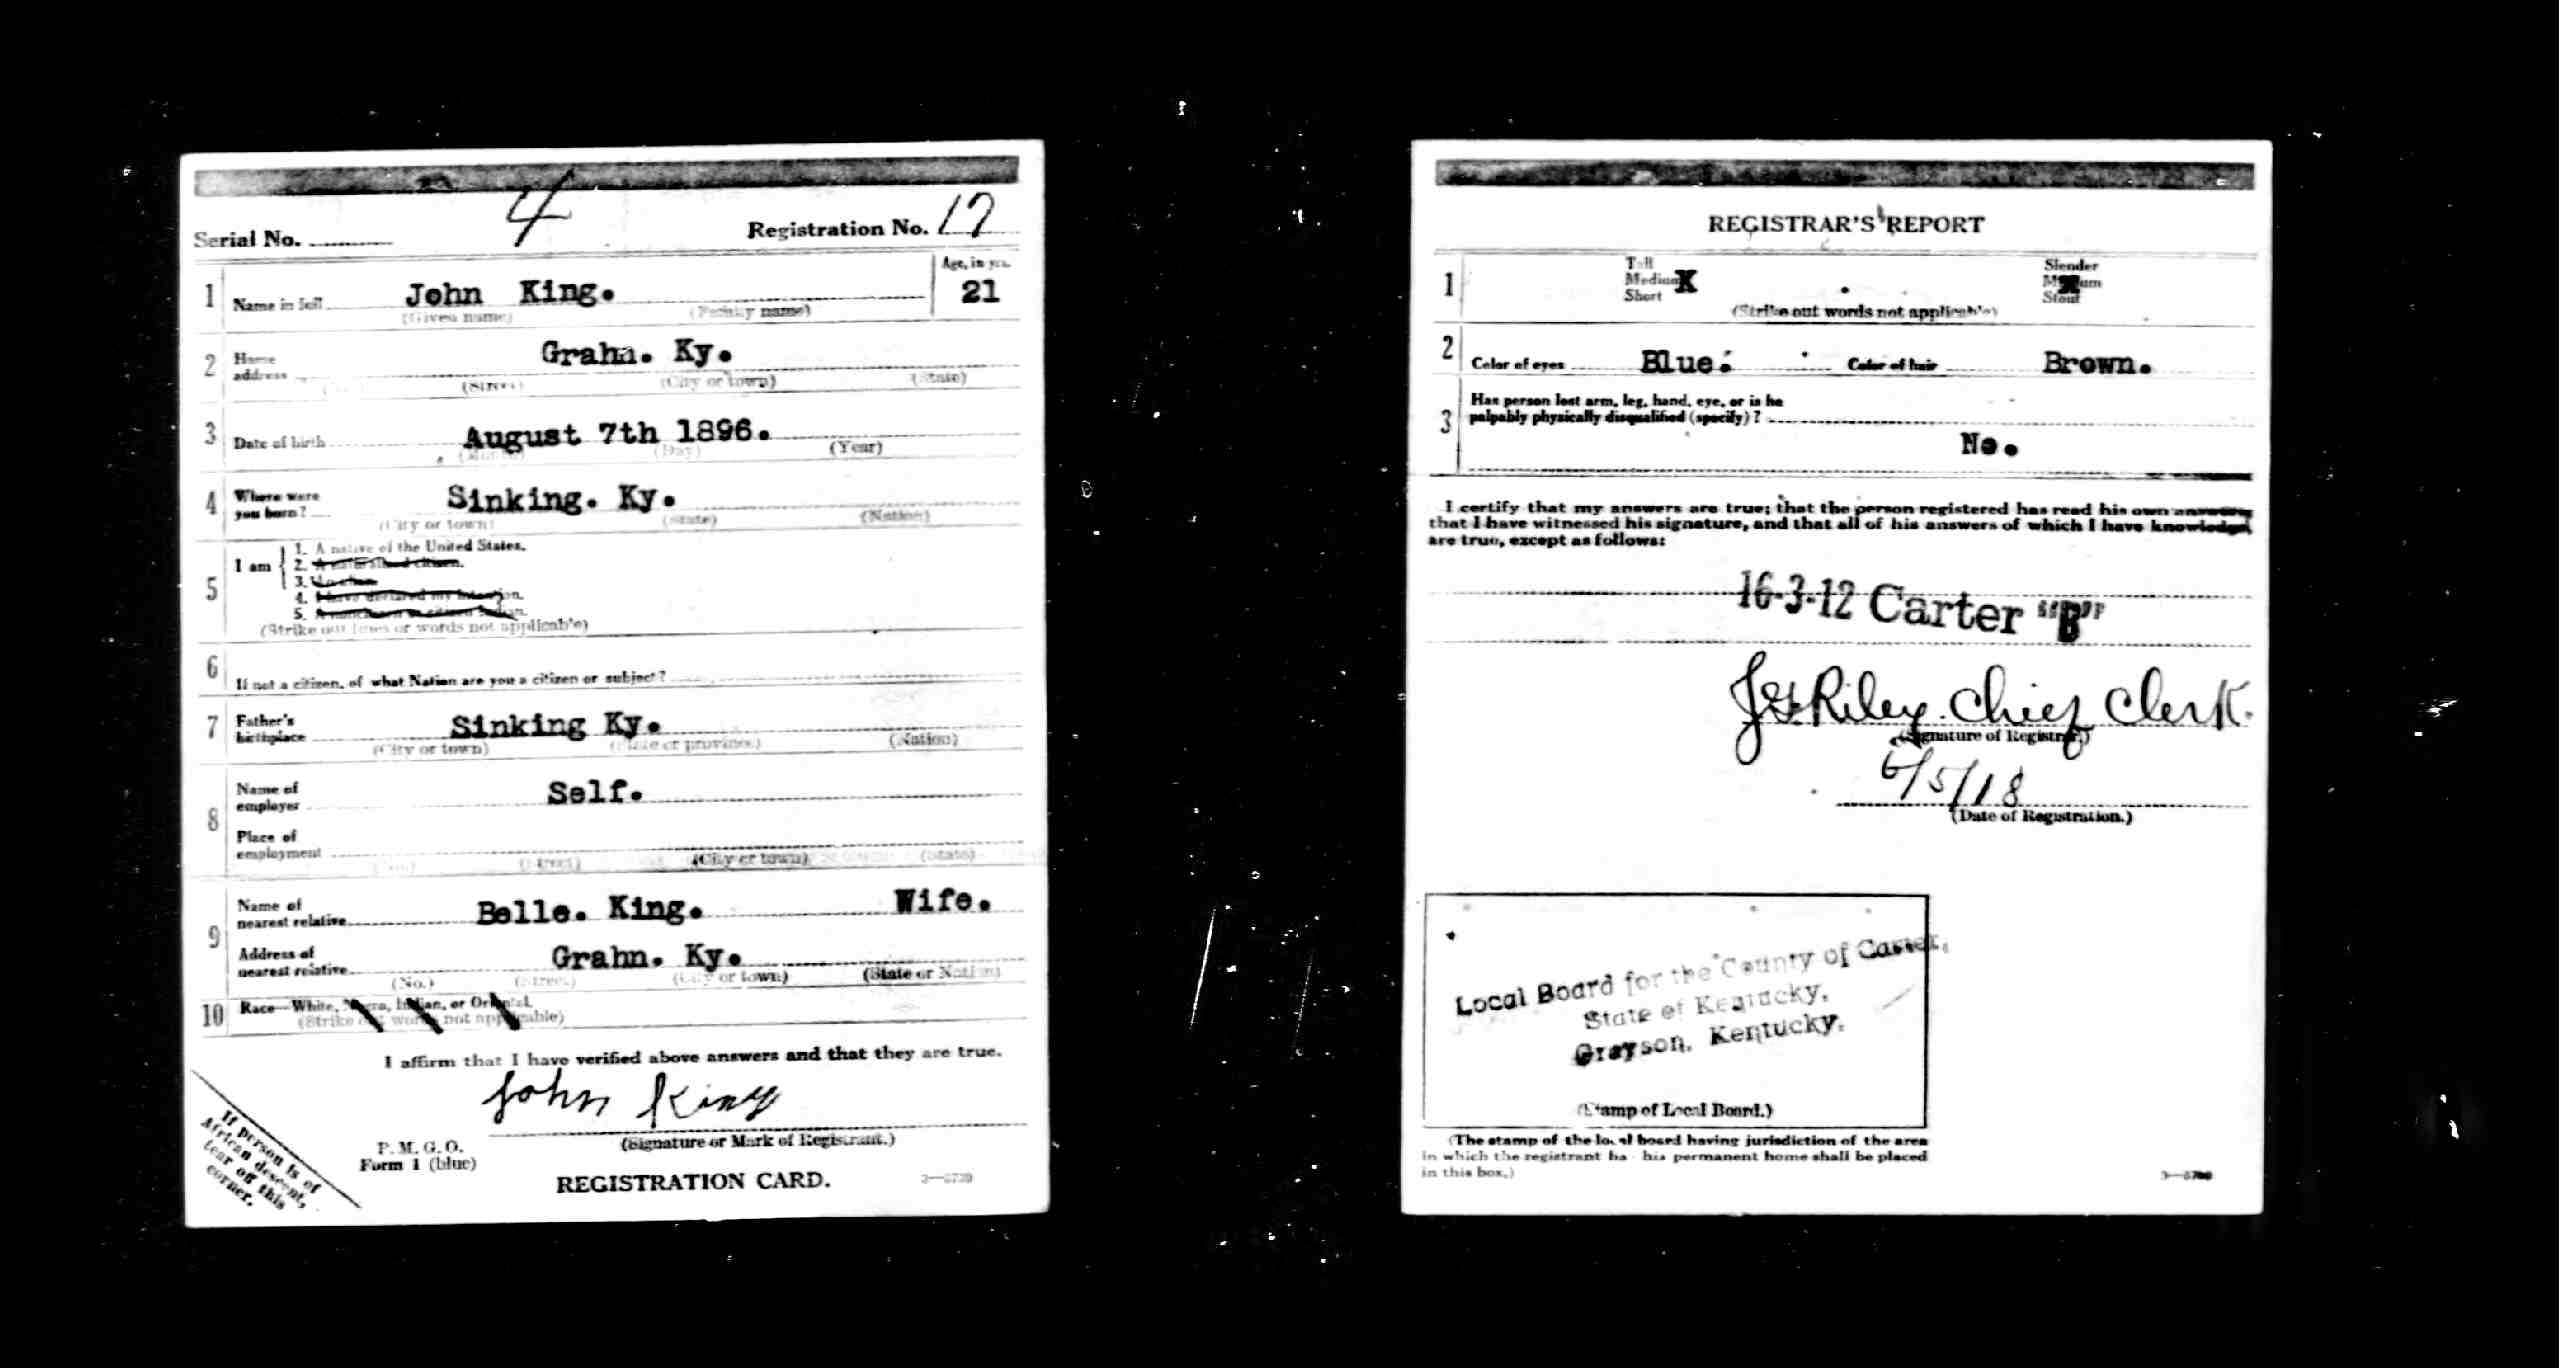 Serial No. 4 Registration No. 17
1 Name in full John King. Age, in yrs. 21
(Given name) (Family name)
2 Home address Grahn. Ky.
(Street) (City or town) (State)
3 Date of birth August 7th 1896.
(Month) (Day) (Year)
4 Where were you born? Sinking. Ky.
(City or town) (State) (Nation)
5 I am
1. A native of the United States.
2. A naturalized citizen.
3. An alien.
4. I have declared my intention.
5. A noncitizen or citizen Indian.
(Strike out lines or words not applicable)
6 If not a citizen, of what Nation are you a citizen or subject?
7 Father's birthplace Sinking Ky.
(City or town) (State or province) (Nation)
8 Name of employer Self.
Place of employment
(No.) (Street) (City or town) (State)
9 Name of nearest relative Belle. King. Wife.
Address of nearest relative Grahn. Ky.
(No.) (Street) (City or town) (State or Nation)
10 Race—White, Negro, Indian, or Oriental.
(Strike out words not applicable)
I affirm that I have verified above answers and that they are true.
John King
(Signature or Mark of Registrant.)
P. M. G. O.
Form 1 (blue)
REGISTRATION CARD.
If person is of
African descent,
tear off this
corner.
REGISTRAR'S REPORT
1 Tall Slender
Medium X Medium X
Short Stout
(Strike out words not applicable)
2 Color of eyes Blue. Color of hair Brown.
3 Has person lost arm, leg, hand, eye, or is he
palpably physically disqualified (specify)?
No.
I certify that my answers are true; that the person registered has read his own answers,
that I have witnessed his signature, and that all of his answers of which I have knowledge
are true, except as follows:
16-3-12 Carter "B"
Riley. Chief Clerk.
(Signature of Registrar.)
6/5/18
(Date of Registration.)
Local Board for the County of Carter,
State of Kentucky,
Grayson, Kentucky.
(Stamp of Local Board.)
(The stamp of the local board having jurisdiction of the area
in which the registrant has his permanent home shall be placed
in this box.)